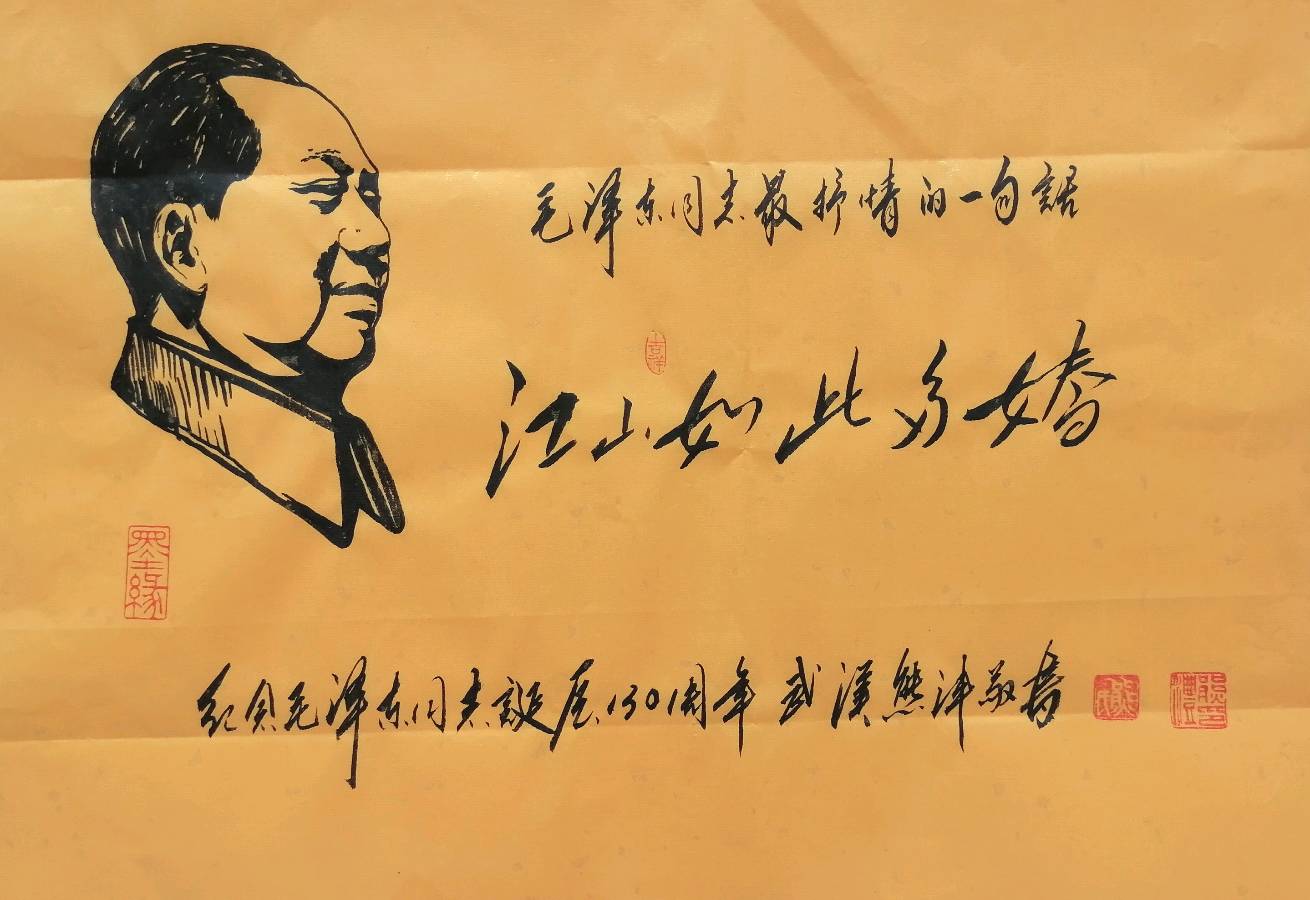 毛泽东同志最抒情的一句話
吉祥
江山如此多嬌
墨緣
纪念毛泽东同志誕辰130周年 武漢熊沣敬書